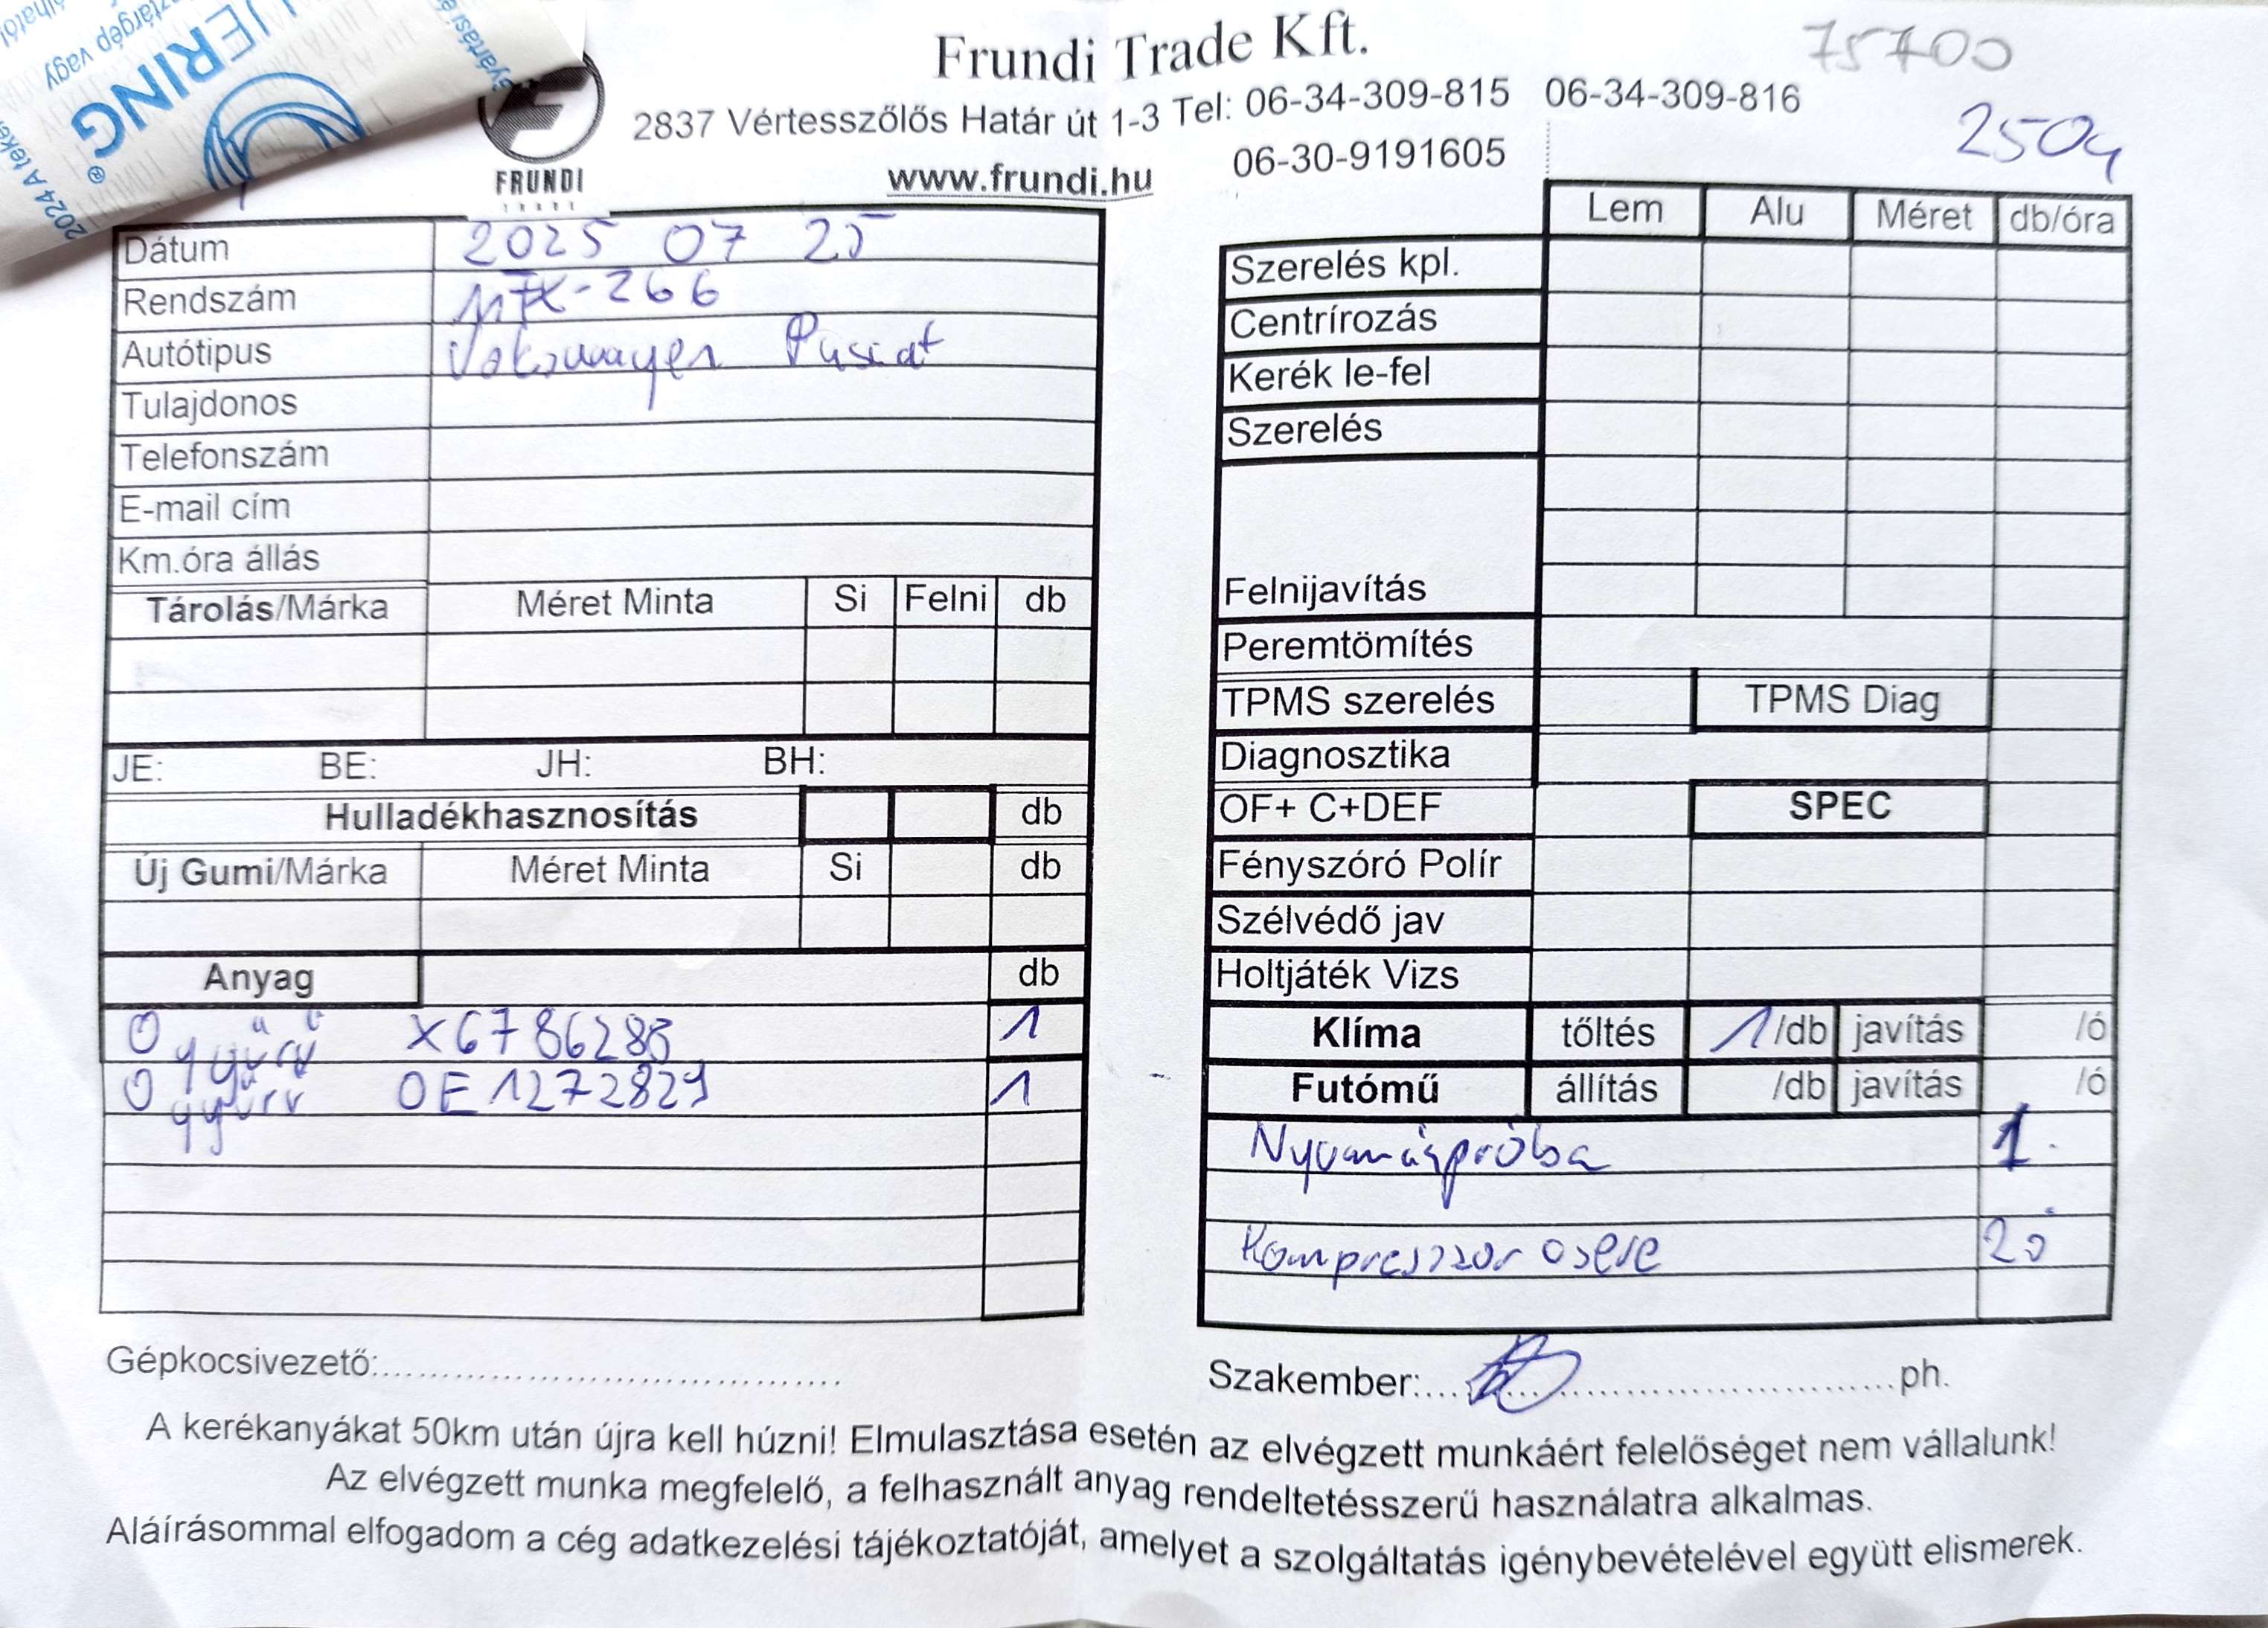 Frundi Trade Kft.
75700
2837 Vértesszőlős Határ út 1-3 Tel: 06-34-309-815 06-34-309-816
2504
06-30-9191605
www.frundi.hu
FRUNDI
TRADE
ERING®
tárgép vagy
2024 A teke
Dátum 2025 07 25
Rendszám -266
Autótipus Volkswagen Passat
Tulajdonos
Telefonszám
E-mail cím
Km.óra állás
Tárolás/Márka Méret Minta Si Felni db
JE: BE: JH: BH:
Hulladékhasznosítás db
Új Gumi/Márka Méret Minta Si db
Anyag db
O gyűrű X6786288 1
O gyűrű OE1272829 1
Lem Alu Méret db/óra
Szerelés kpl.
Centrírozás
Kerék le-fel
Szerelés
Felnijavítás
Peremtömítés
TPMS szerelés TPMS Diag
Diagnosztika
OF+ C+DEF SPEC
Fényszóró Polír
Szélvédő jav
Holtjáték Vizs
Klíma tőltés 1/db javítás /ó
Futómű állítás /db javítás /ó
Nyomáspróba 1.
Kompresszor csere
Gépkocsivezető:
Szakember: ph.
A kerékanyákat 50km után újra kell húzni! Elmulasztása esetén az elvégzett munkáért felelőséget nem vállalunk!
Az elvégzett munka megfelelő, a felhasznált anyag rendeltetésszerű használatra alkalmas.
Aláírásommal elfogadom a cég adatkezelési tájékoztatóját, amelyet a szolgáltatás igénybevételével együtt elismerek.